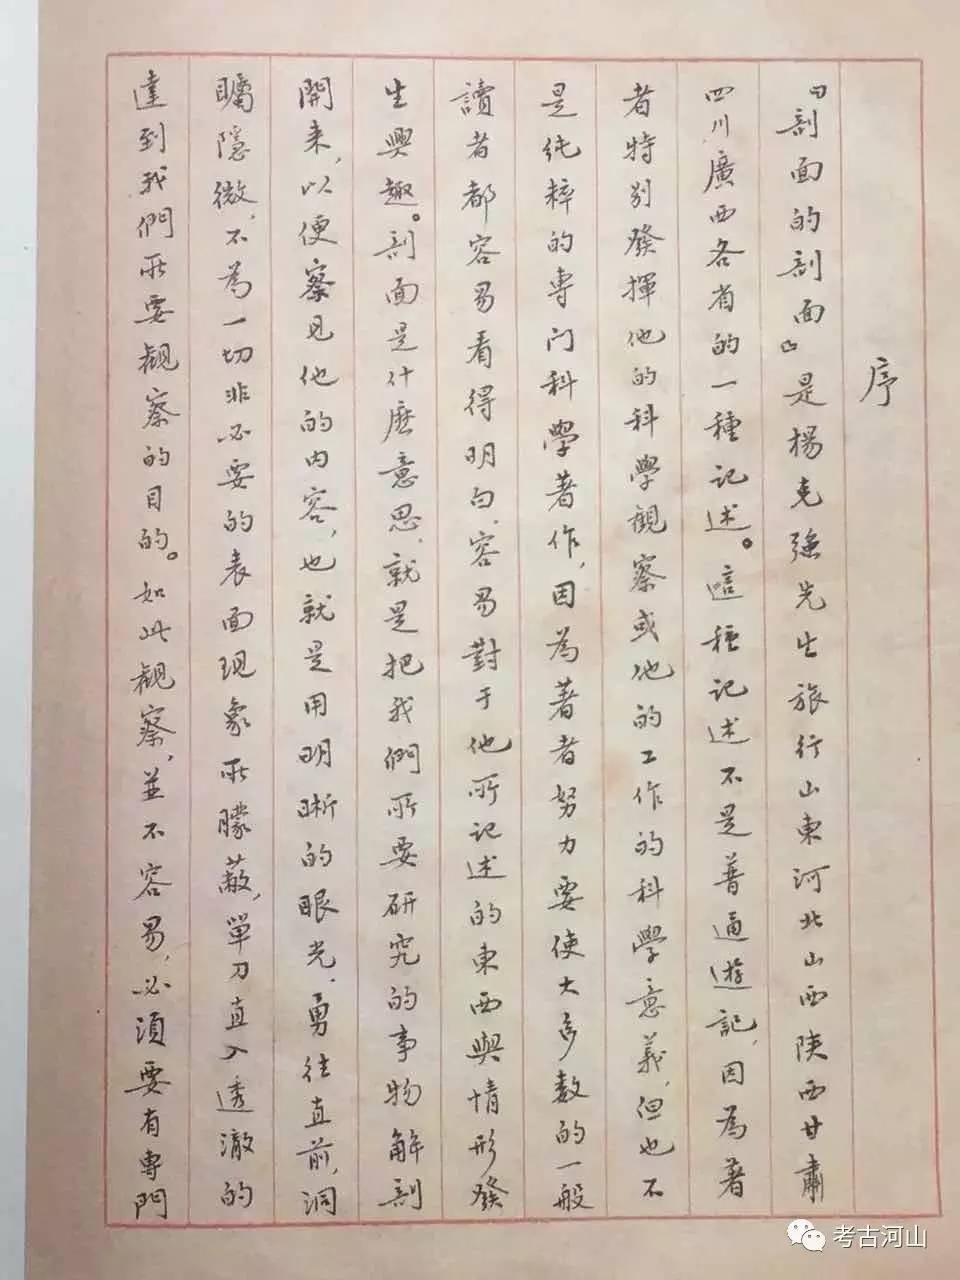 序
『剖面的剖面』是楊克強先生旅行山東河北山西陝西甘肅
四川廣西各省的一種記述。這種記述不是普通遊記，因為著
者特別發揮他的科學觀察或他的工作的科學意義，但也不
是純粹的專门科學著作，因為著者努力要使大多数的一般
讀者都容易看得明白，容易對于他所记述的東西與情形發
生興趣。剖面是什麽意思，就是把我們所要研究的事物解剖
開来，以便察見他的内容，也就是用明晰的眼光，勇往直前，洞
矚隱微，不為一切非必要的表面現象所朦蔽，單刀直入透澈的
達到我們所要観察的目的。如此観察，並不容易，必須要有專門
考古河山